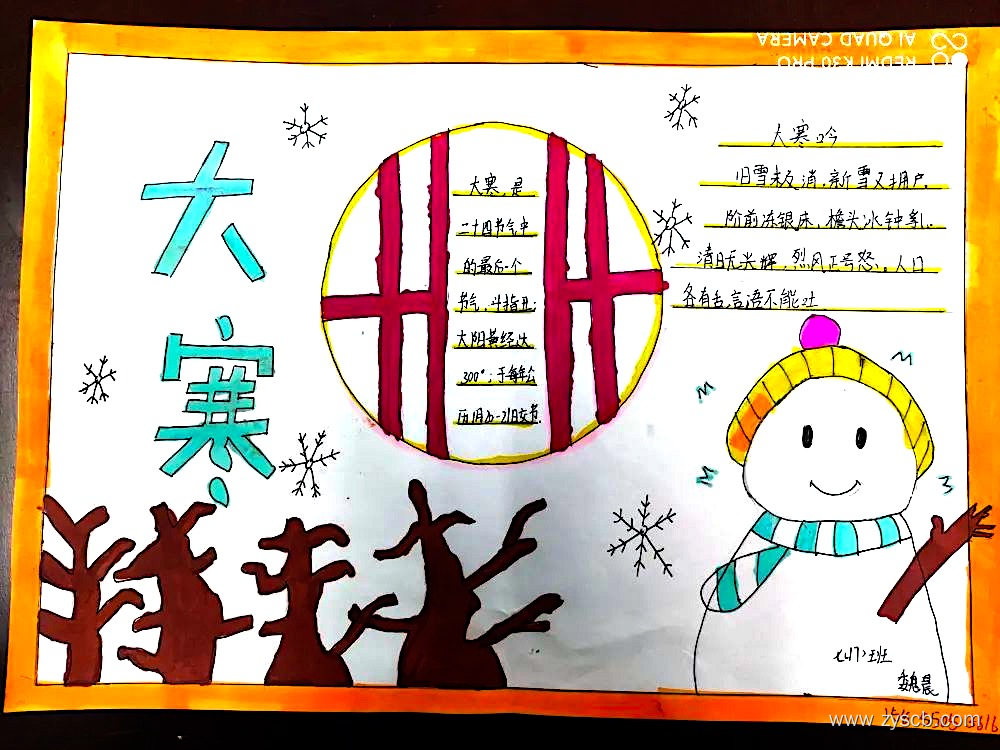 大寒
大寒是
二十四节气中
的最后一个
节气，斗指丑；
太阳黄经达
300°；于每年公
历1月20-21日交节.
大寒吟
旧雪未及消，新雪又拥户.
阶前冻银床，檐头冰钟乳.
清日无光辉，烈风正号怒。人口
各有舌，言语不能吐
班
REDMI K30 PRO
AI QUAD CAMERA
www.zyscb.com